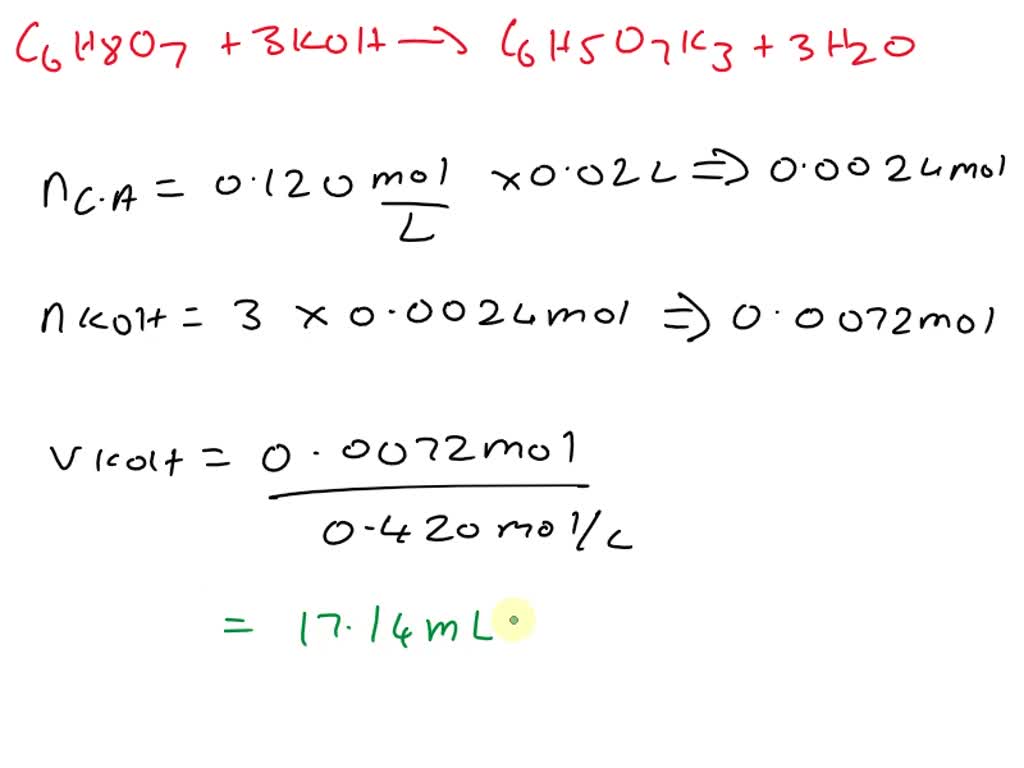 C6H8O7 + 3KOH → C6H5O7K3 + 3H2O
nC.A = 0.120 mol/L × 0.02L ⇒ 0.0024mol
nKOH = 3 × 0.0024mol ⇒ 0.0072mol
VKOH = 0.0072mol
0.420mol/L
= 17.14mL